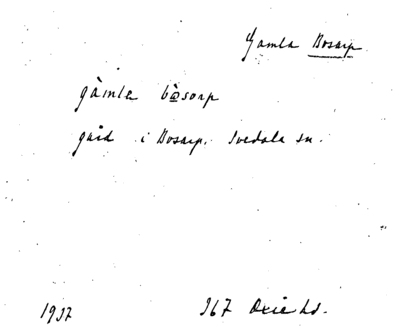 Gamla Bosarp
gàmla bòsorp
gård i Bosarp. Svedala sn.
1937 367 Oxie hd.